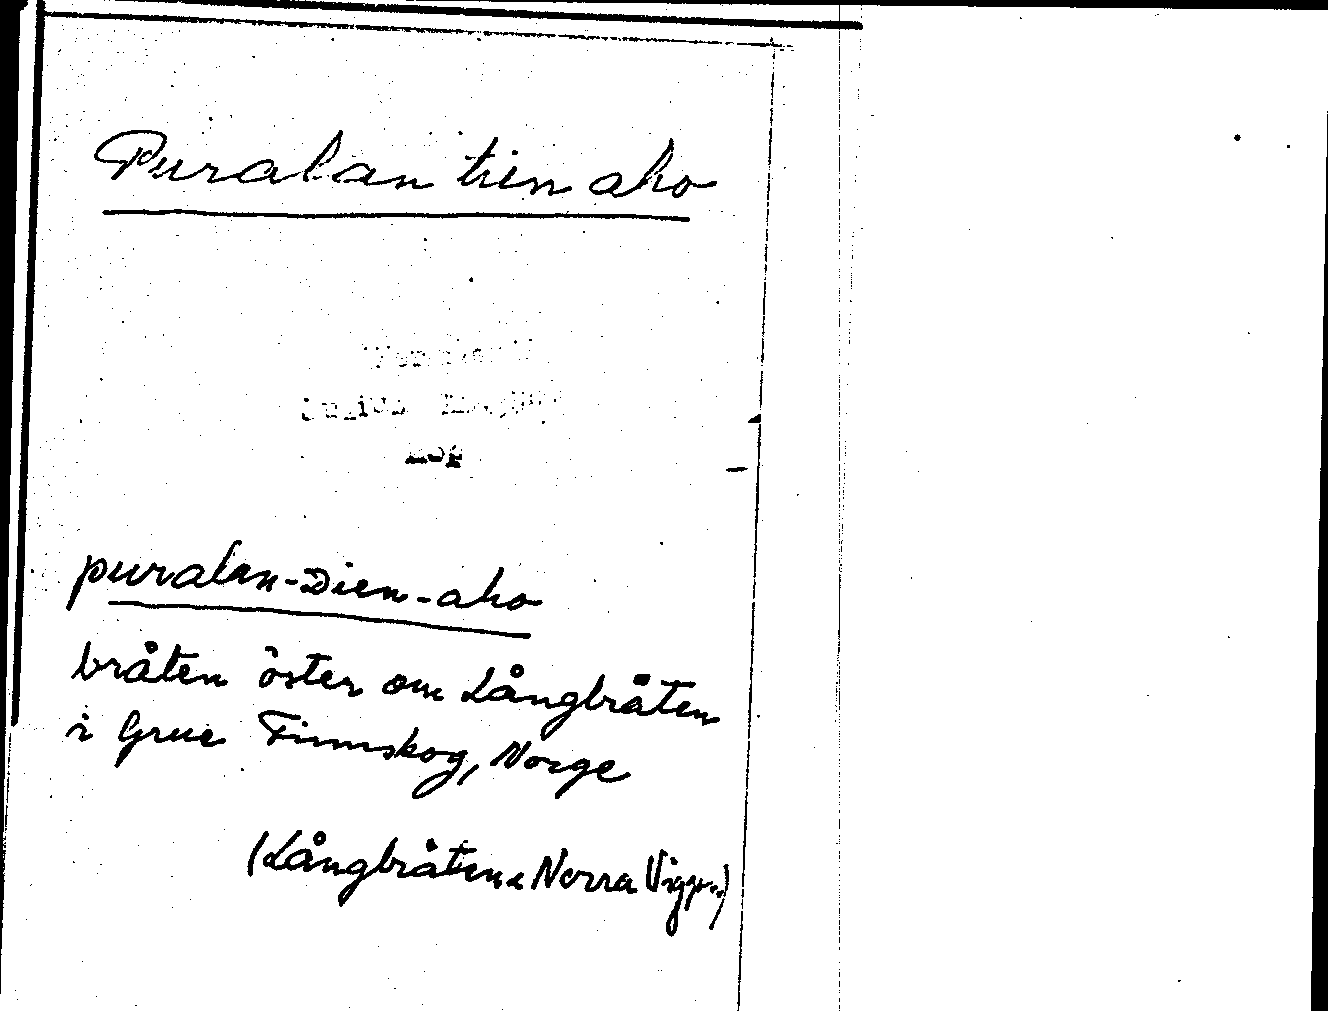 Puralan tien aho
puralan-Dien-aho
bråten öster om Långbråten
i Grue Finnskog, Norge
(Långbråten i Norra Viggen)